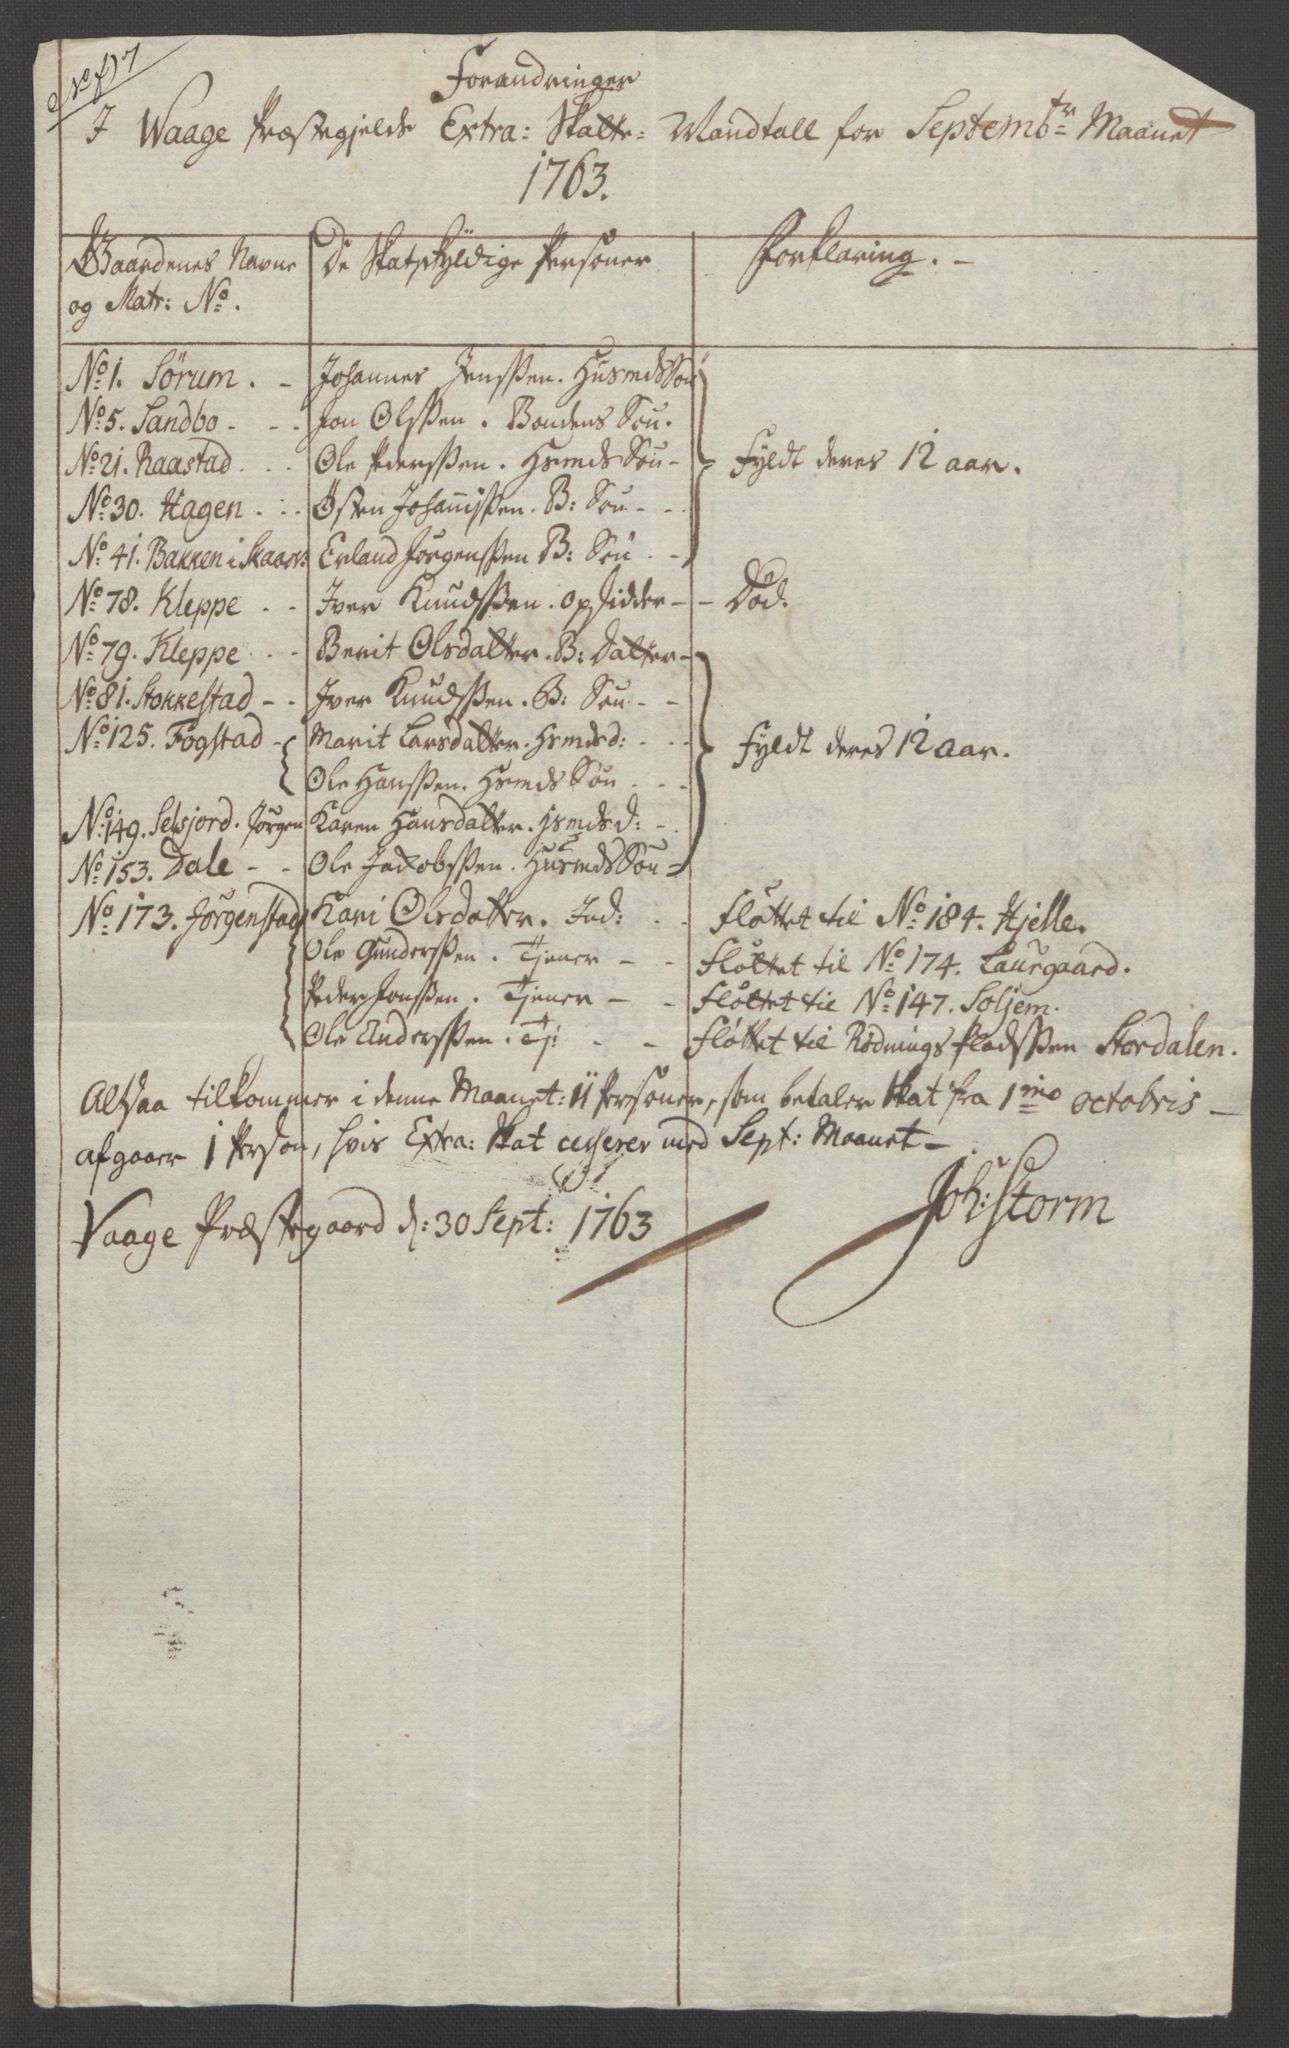 Forandringer
I Waage Præstegjelds Extra: Skatte- Mandtall for Septembtr Maanet
1763.
Gaardenes Navne De Skatskyldige Personer Forklaring. -
og Matr: No.
No 1. Sörum. - Johannes Jenssen. HusmdsSön
No 5. Sandbo - - - Jon Olssen. Bondens Sön.
No 21. Raastad. . . Ole Pederssen. Hsmds Sön - Fyldt deres 12 aar.
No 30. Hagen . . . Östen Johannissen. B: Sön - -
No 41. Bakken i Skaar: Erland Jörgenssen B: Sön . -
No 78. Kleppe . . Iver Knudssen. Opsidder - - Död.
No 79. Kleppe . . Berit Olsdatter. B: Datter -
No 81. Stokkestad - - Iver Knudssen. B: Sön - -
No 125. Fogstad - Marit Larsdatter. Hsmdsd: . . . Fyldt deres 12 aar.
Ole Hanssen. Hsmds Sön . . .
No 149. Selsjord. Jörgen Karen Hansdatter. Hsmdsd: - .
No 153. Dale - - Ole Jacobssen. HusmdsSön -
No 173. Jörgenstad Kari Olsdatter. Ind: . . Flöttet til No 184. Hjelle.
Ole Gunderssen. Tjener - - Flöttet til No 174. Laurgaard.
Peder Jonssen. Tjener - - Flöttet til No 147. Soljem.
Ole Anderssen. Tj: - - Flöttet til Rödnings Pladssen Stordalen.
Altsaa tilkommer i denne Maanet: 11 Personer, som betaler Skat fra 1mo octobris -
afgaaer 1 Person, hvis Extra: Skat cesserer med Sept: Maanet -
Vaage Præstegaard d: 30 Sept: 1763
Joh: Storm